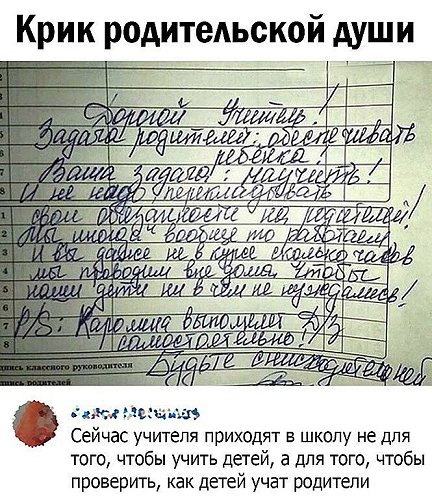 Крик родительской души
Дорогой Учитель!
Задача родителей: обеспечивать
ребёнка!
Ваша задача: научить!
И не надо перекладывать
свои обязанности на родителей!
Мы иногда вообще то работаем
И вы даже не в курсе сколько часов
мы проводим вне дома, чтобы
наши дети ни в чём не нуждались!
P/S: Каролина выполняет Д/З
самостоятельно!
Будьте снисходительней
классного руководителя
родителей
Сейчас учителя приходят в школу не для
того, чтобы учить детей, а для того, чтобы
проверить, как детей учат родители